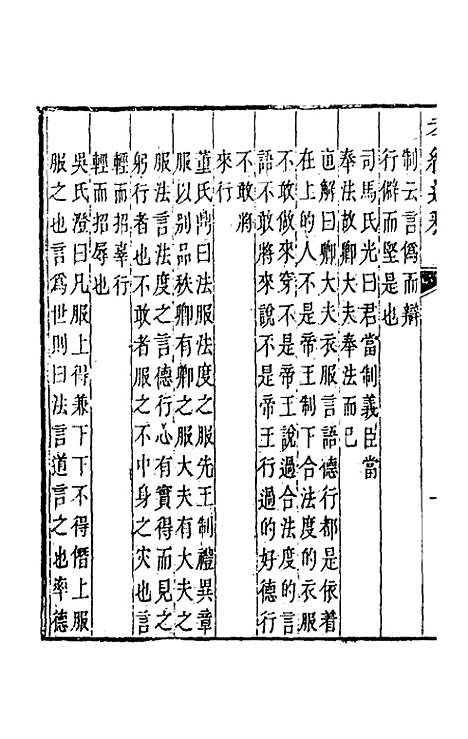 制云言僞而辯
行僻而堅是也
司馬氏光曰君當制義臣當
奉法故卿大夫奉法而已
直解曰卿大夫衣服言語德行都是依着
在上的人不是帝王制下合法度的衣服
不敢做來穿不是帝王說過合法度的言
語不敢將來說不是帝王行過的好德行
不敢將
來行
董氏鼎曰法服法度之服先王制禮異章
服以別品秩卿有卿之服大夫有大夫之
服法言法度之言德行心有實得而見之
躬行者也不敢者服之不中身之灾也言
輕而招辜行
輕而招辱也
吳氏澄曰凡服上得兼下下不得僭上服
服之也言爲世則曰法言道言之也率德